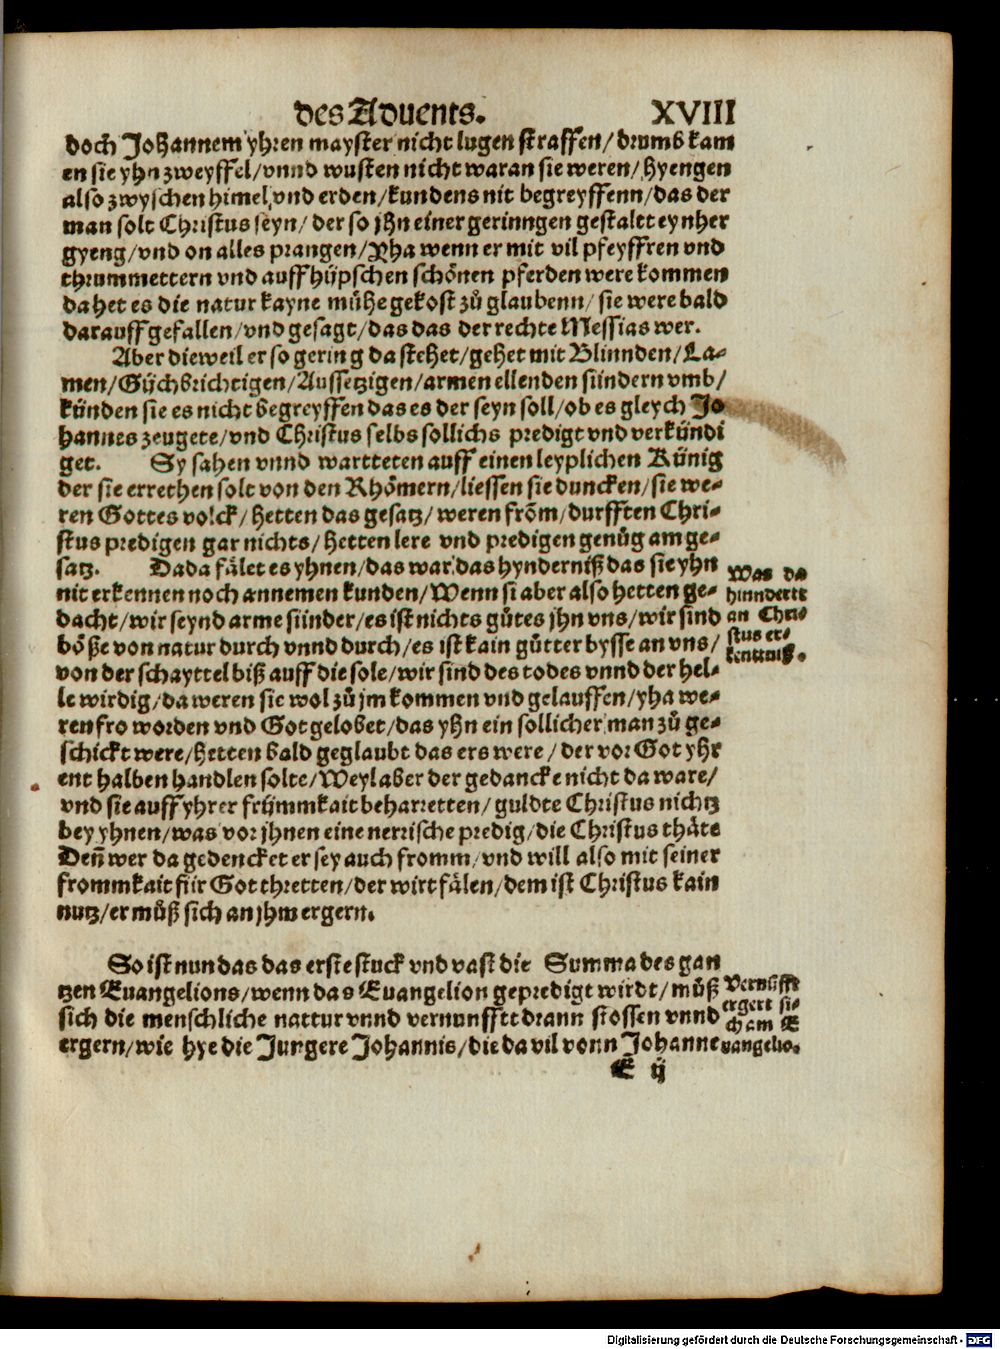 des Aduents. XVIII
doch Johannem yhren mayster nicht lugen straffen/ drumb kam
en sie yhn zweyffel/ vnnd wusten nicht waran sie weren/ hyengen
also zwyschen himel vnd erden/ kundens nit begreyffenn/ das der
man solt Christus seyn/ der so jhn einer gerinngen gestaltt eynher
gyeng/ vnd on alles prangen/ Yha wenn er mit vil pfeyffren vnd
thrummettern vnd auff hüpschen schönen pferden were kommen
da het es die natur kayne mühe gekost zů glaubenn/ sie were bald
darauff gefallen/ vnd gesagt/ das das der rechte Messias wer.
Aber dieweil er so gering da stehet/ gehet mit Blinnden/ La-
men/ Gychbrichtigen/ Aussetzigen/ armen ellenden sündern vmb/
künden sie es nicht begreyffen das es der seyn soll/ ob es gleych Jo
hannes zeugete/ vnd Christus selbs sollichs predigt vnd verkündi
get. Sy sahen vnnd wartteten auff einen leyplichen Künig
der sie errethen solt von den Rhömern/ liessen sie duncken/ sie we-
ren Gottes volck/ hetten das gesatz/ weren from/ durfften Chri-
stus predigen gar nichts/ hetten lere vnd predigen genůg am ge-
satz. Da da fälet es yhnen/ das war das hynderniß das sie yhn
nit erkennen noch annemen kunden/ Wenn si aber also hetten ge-
dacht/ wir seynd arme sünder/ es ist nichts gůtes jhn vns/ wir sind
böße von natur durch vnnd durch/ es ist kain gůtter bysse an vns/
von der schayttel biß auff die sole/ wir sind des todes vnnd der hel-
le wirdig/ da weren sie wol zů jm kommen vnd gelauffen/ yha we-
ren fro worden vnd Got gelobet/ das yhn ein sollicher man zů ge-
schickt were/ hetten bald geglaubt das ers were/ der vor Got yhr
ent halben handlen solte/ Weyl aber der gedancke nicht da ware/
vnd sie auff yhrer frümmkait beharretten/ guldte Christus nichtz
bey yhnen/ was vor jhnen eine nerrische predig/ die Christus thäte
Deñ wer da gedencket er sey auch fromm/ vnd will also mit seiner
frommkait für Got thretten/ der wirt fälen/ dem ist Christus kain
nutz/ er můß sich an jhm ergern.
Was da
hinndertt
an Chri-
stus er-
kenttnis.
So ist nun das das erste stuck vnd vast die Summa des gan
tzen Euangelions/ wenn das Euangelion gepredigt wirdt/ můß
sich die menschliche nattur vnnd vernunfftt drann stossen vnnd
ergern/ wie hye die Jungere Johannis/ die da vil vonn Johanne
Vernufft
ergert si-
ch am E
uangelio.
E ij
Digitalisierung gefördert durch die Deutsche Forschungsgemeinschaft - DFG